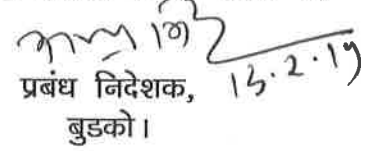 13.2.19
प्रबंध निदेशक,
बुडको।